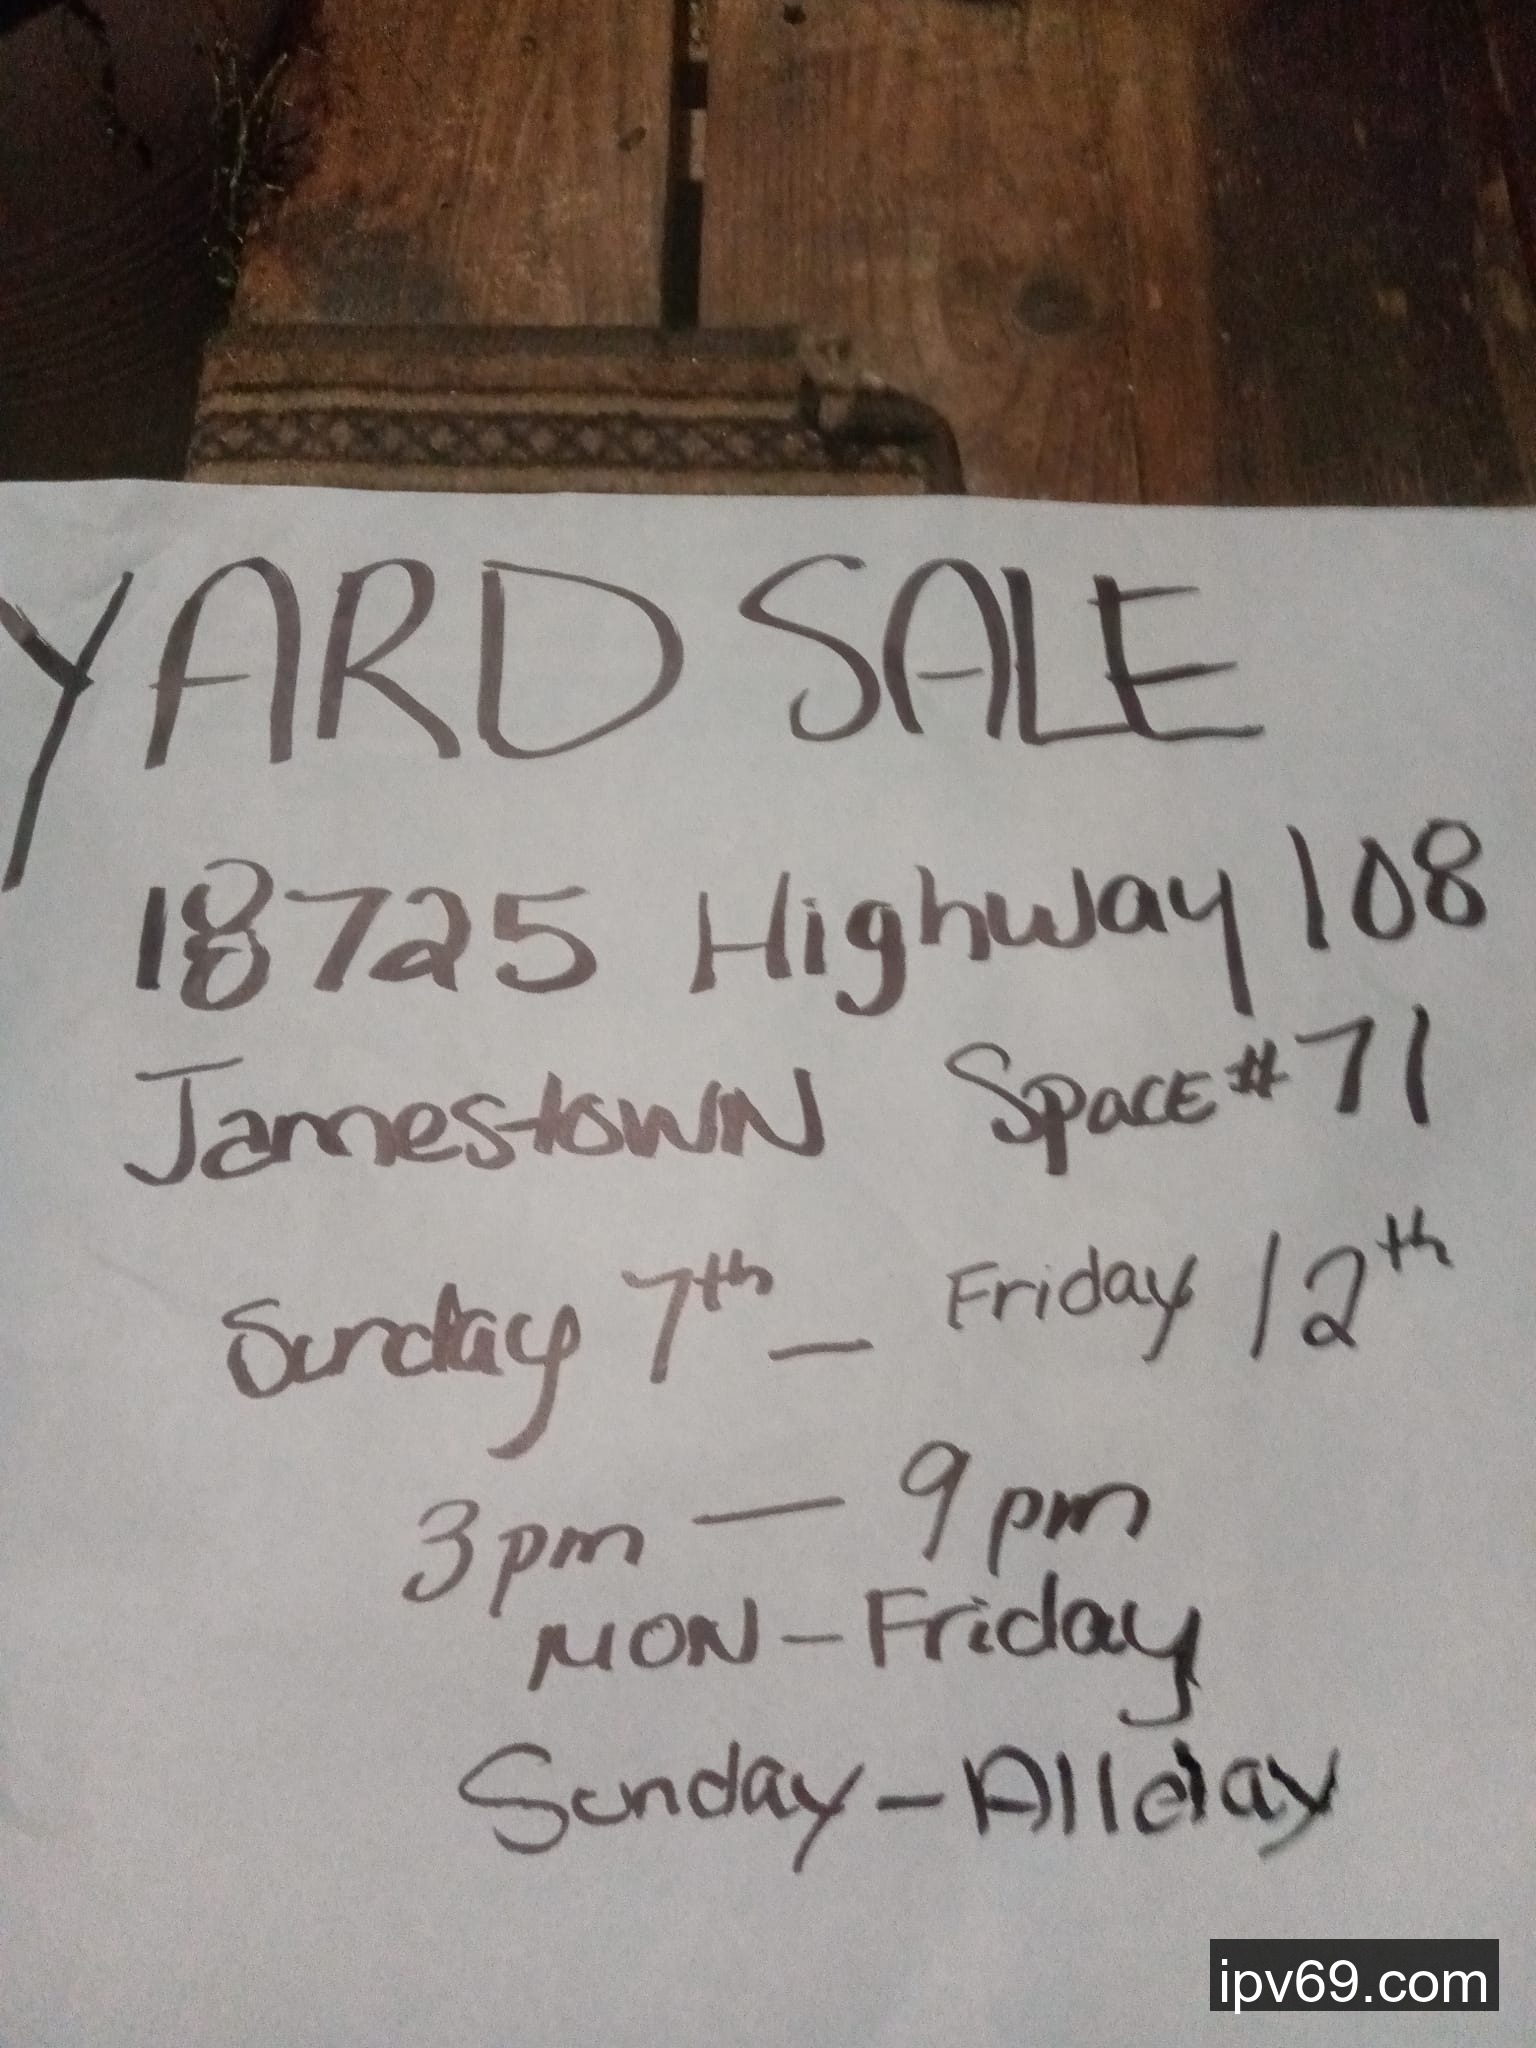 YARD SALE
18725 Highway 108
Jamestown Space # 71
Sunday 7th - Friday 12th
3pm - 9pm
MON - Friday
Sunday - All day
ipv69.com